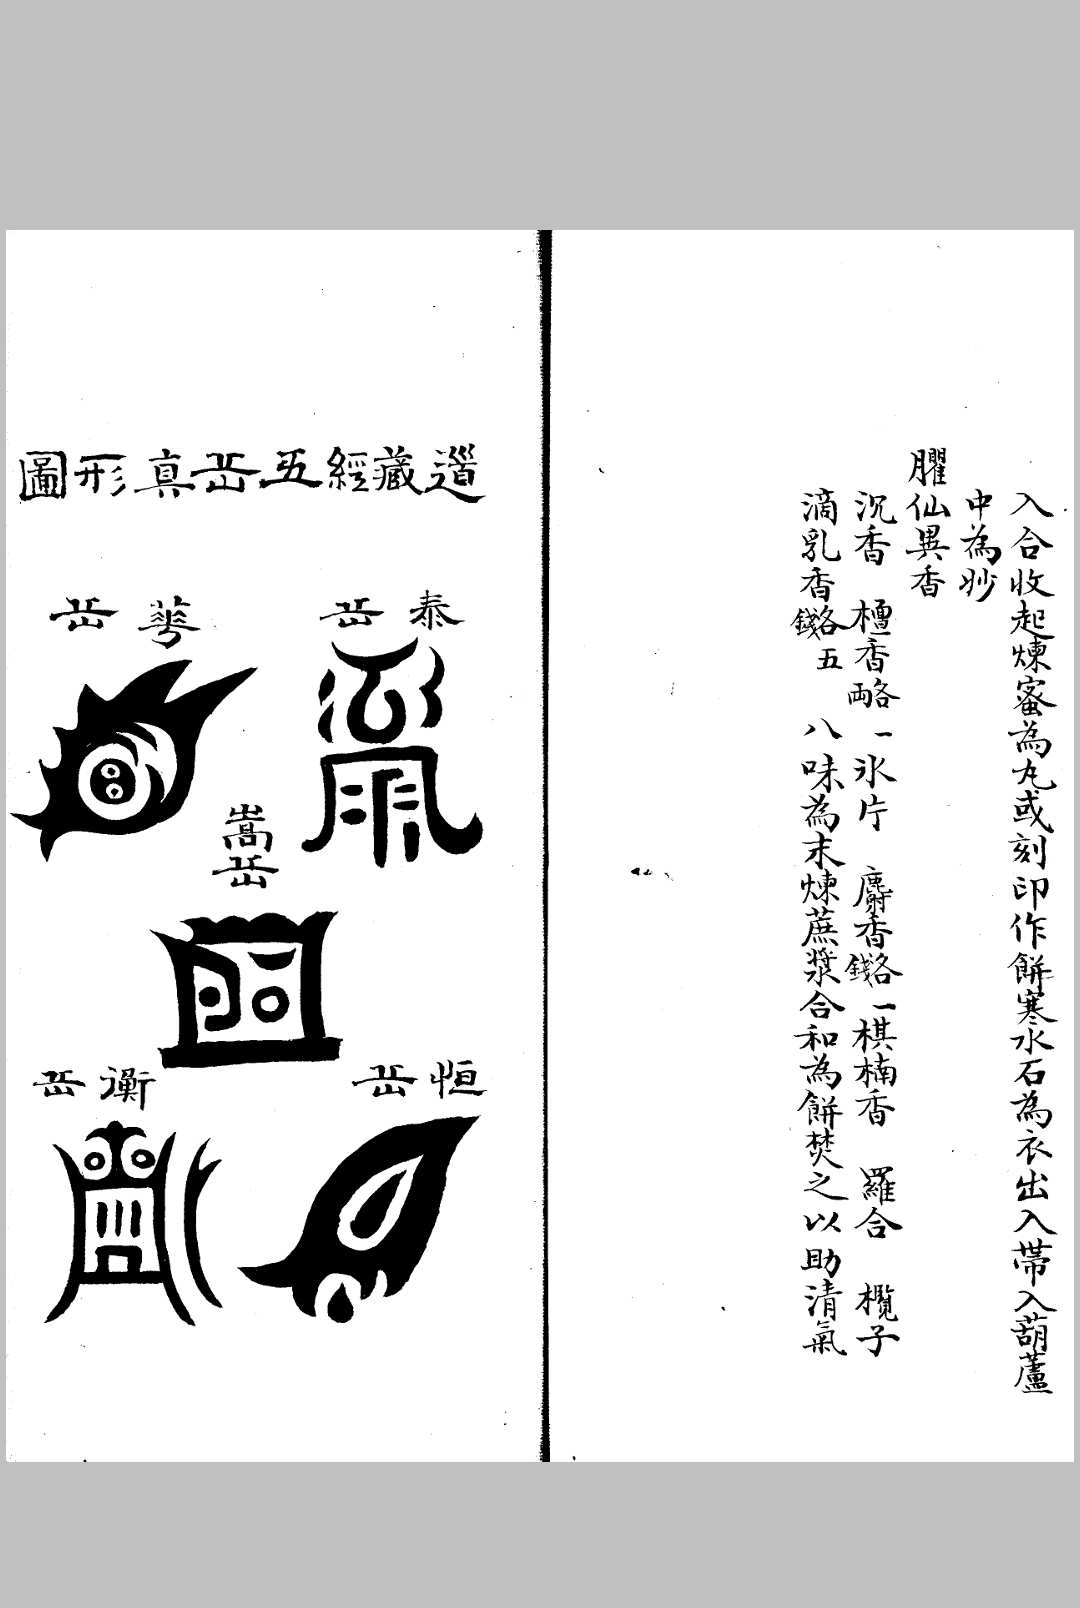 入合收起煉蜜為丸或刻印作餅寒水石為衣出入帶入葫蘆
中為妙
臞仙異香
沉香 檀香各一兩 氷片 麝香各一錢 棋楠香 羅合 欖子
滴乳香各五錢 八味為末煉蔗漿合和為餅焚之以助清氣
道藏經五岳真形圖
泰岳
華岳
嵩岳
恒岳
衡岳